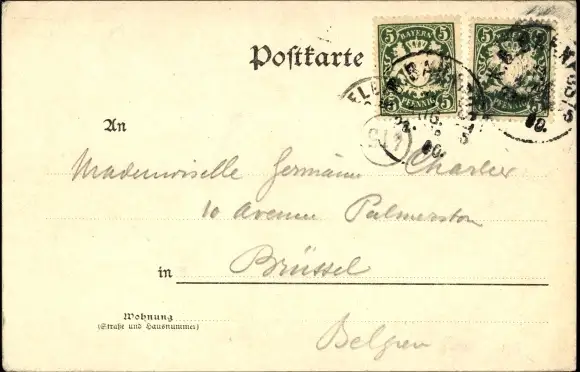 Postkarte
5 BAYERN 5
5 PFENNIG 5
5 BAYERN 5
PFENNIG 5
An
Mademoiselle Germaine Charlier
10 Avenue Palmerston
in Brüssel
Wohnung
(Straße und Hausnummer)
Belgien